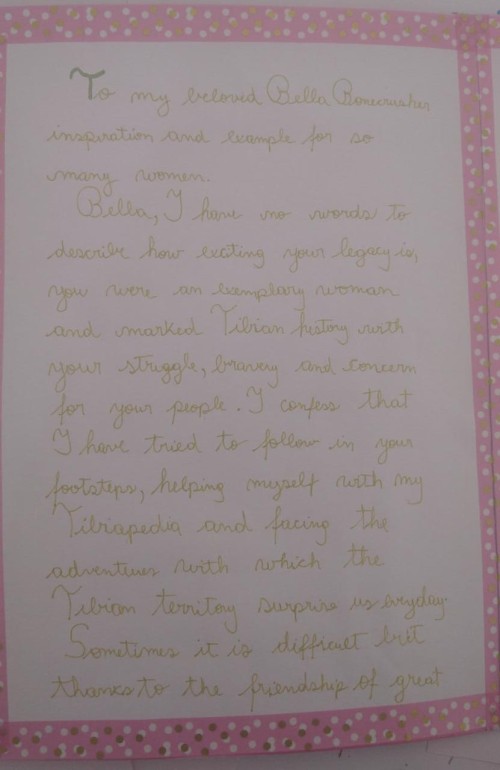 To my beloved Bella Bonecrusher
inspiration and example for so
many women.
Bella, I have no words to
describe how exciting your legacy is,
you were an exemplary woman
and marked Tibian history with
your struggle, bravery and concern
for your people. I confess that
I have tried to follow in your
footsteps, helping myself with my
Tibiapedia and facing the
adventures with which the
Tibian territory surprise us everyday.
Sometimes it is difficult but
thanks to the friendship of great